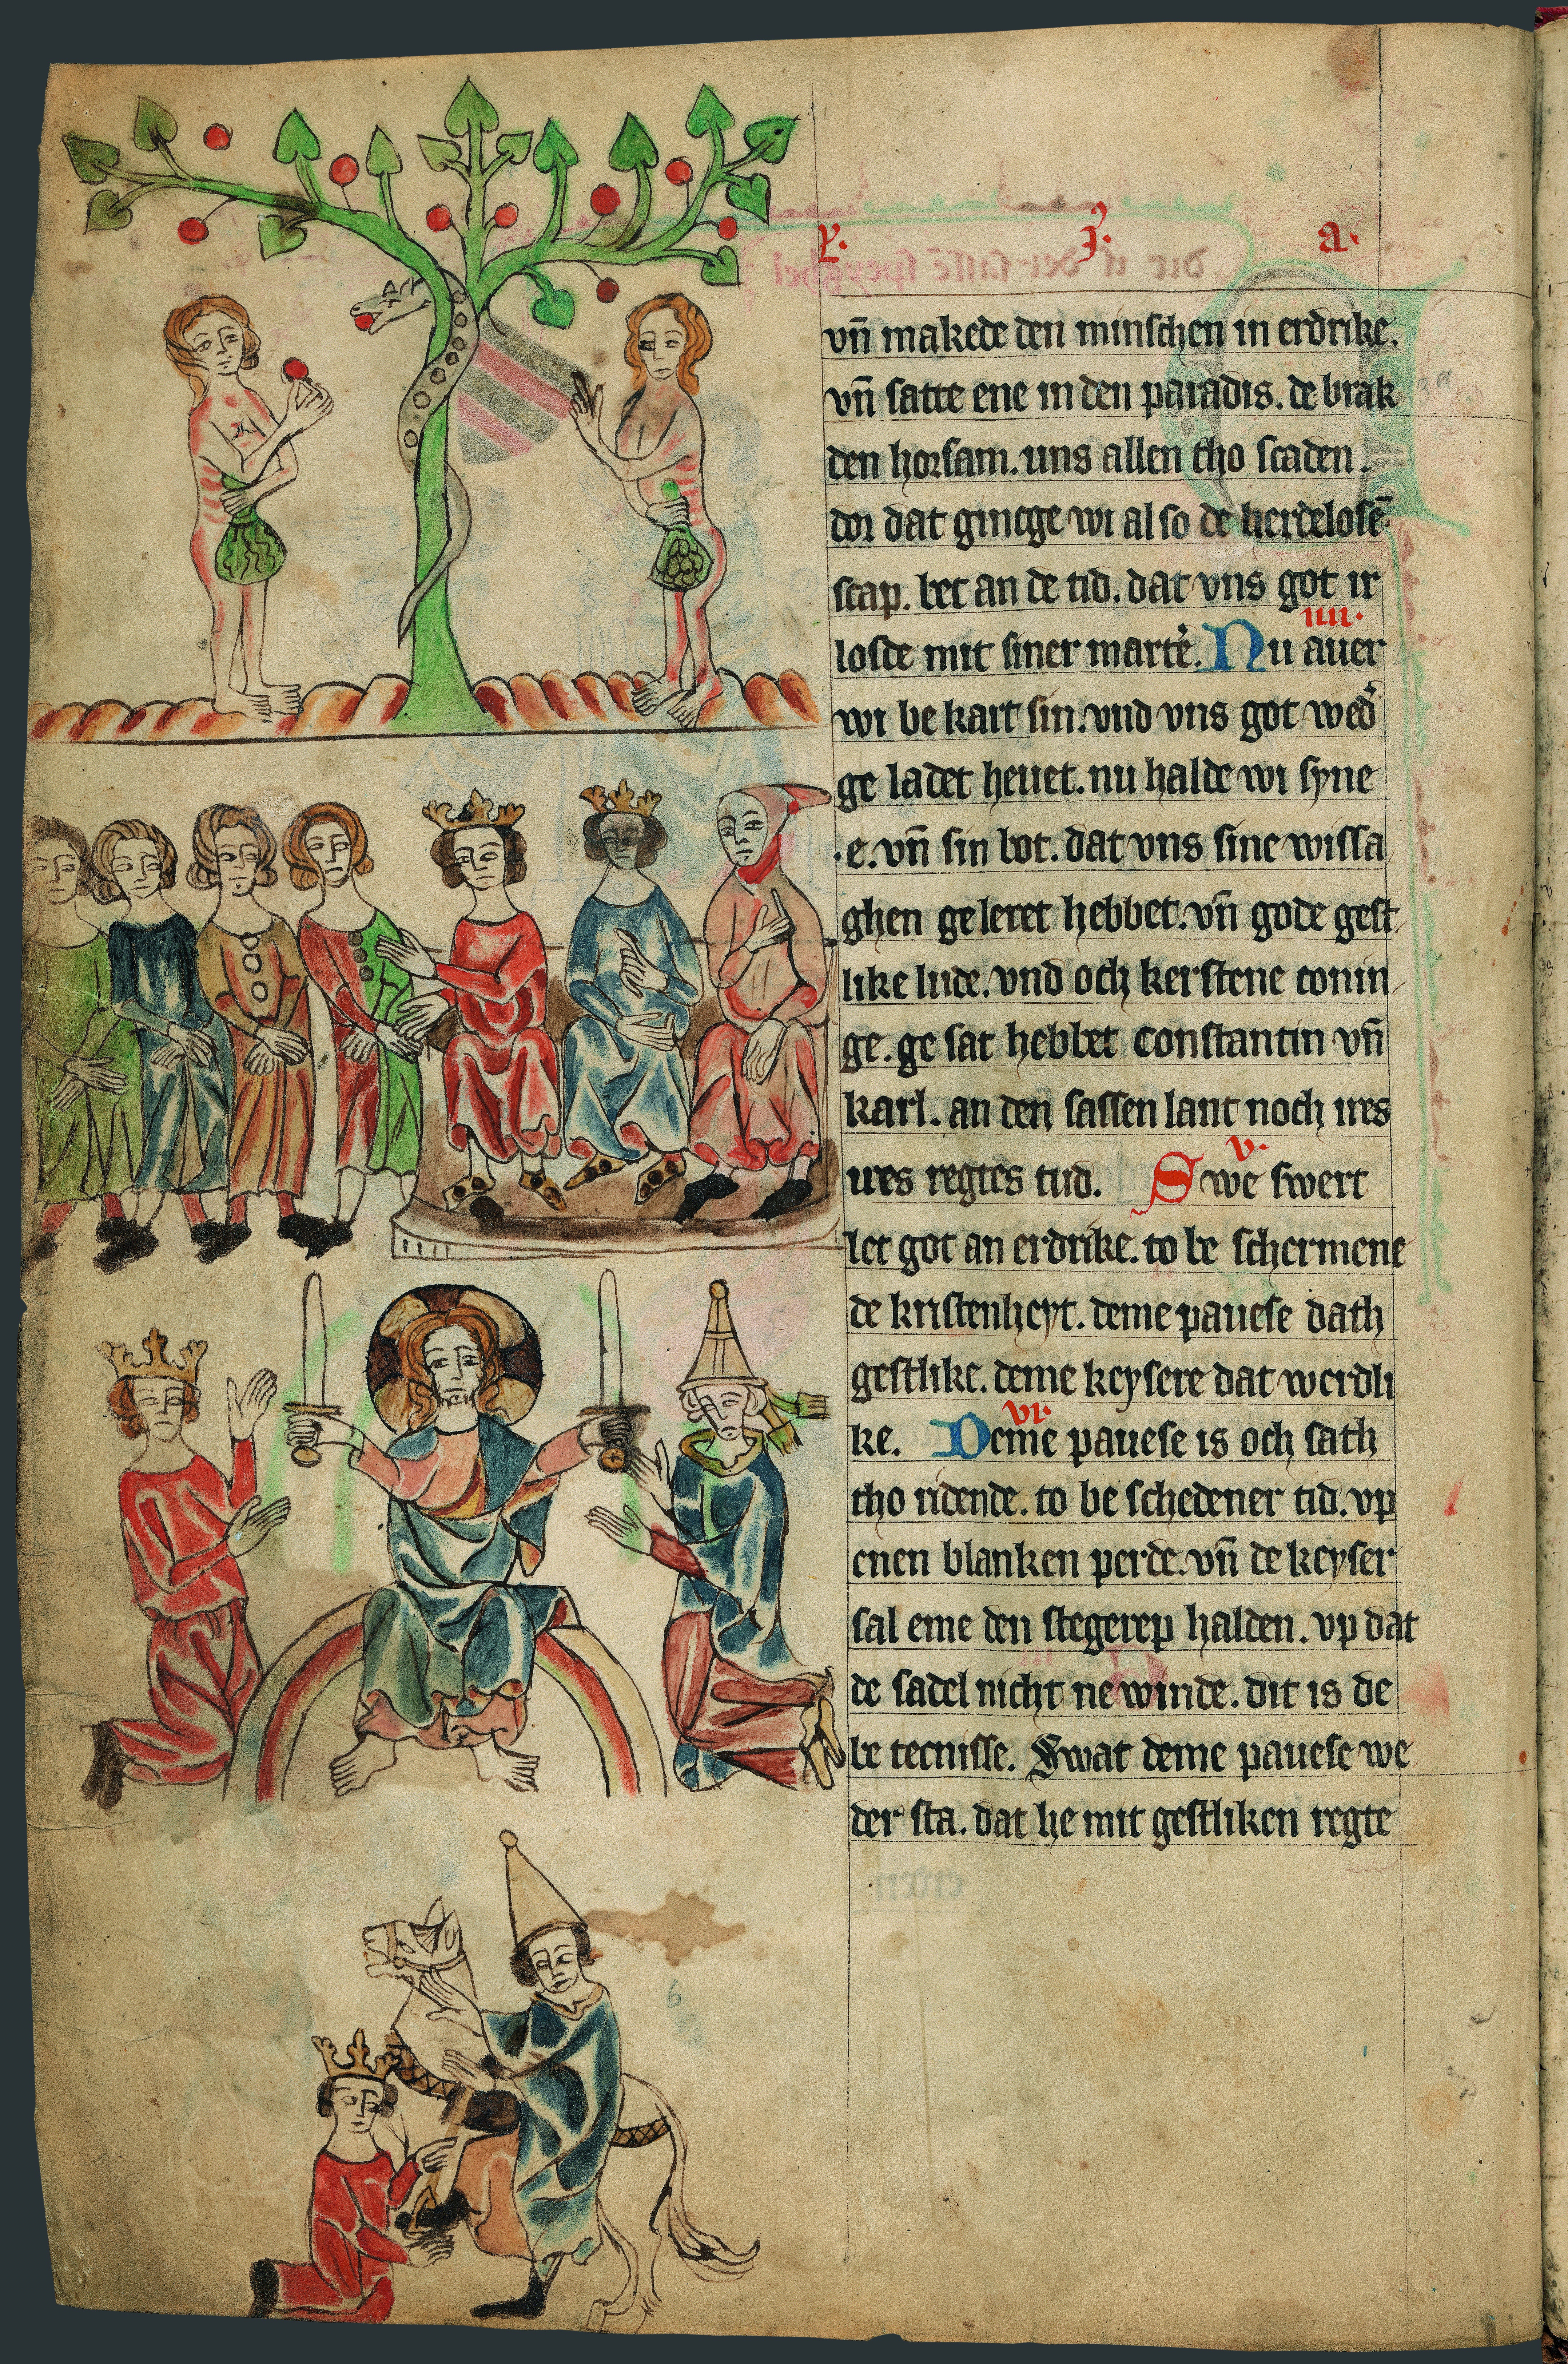 P. I. a.
vn̄ makede den minschen in erdrike.
vn̄ satte ene in den paradis. de brak
den horsam. uns allen tho scaden.
dor dat gincge wi al so de herdelosē
scap. bet an de tid. dat vns got ir
IIII.
loste mit siner marte͛. Nu auer
wi be kart sin. vnd vns got wed͛
ge ladet heuet. nu halde wi syne
.e. vn̄ sin bot. dat vns sine wissa
ghen ge leret hebbet. vn̄ gode gest
like lude. vnd och kerstene conin
ge. ge sat hebbet constantin vn̄
karl. an den sassen lant noch ires
V.
ures regtes tud. Swe swert
let got an erdrike. to be schermene
de kristenheyt. deme pauese dath
gestlike. deme keysere dat werdli
VI.
ke. Deme pauese is och sath
tho ridende. to be schedener tid. vp
enen blanken perde. vn̄ de keyser
sal eme den stegerep halden. vp dat
de sadel nicht ne winde. dit is de
be tecnisse. Swat deme pauese we
der sta. dat he mit gestliken regte
6